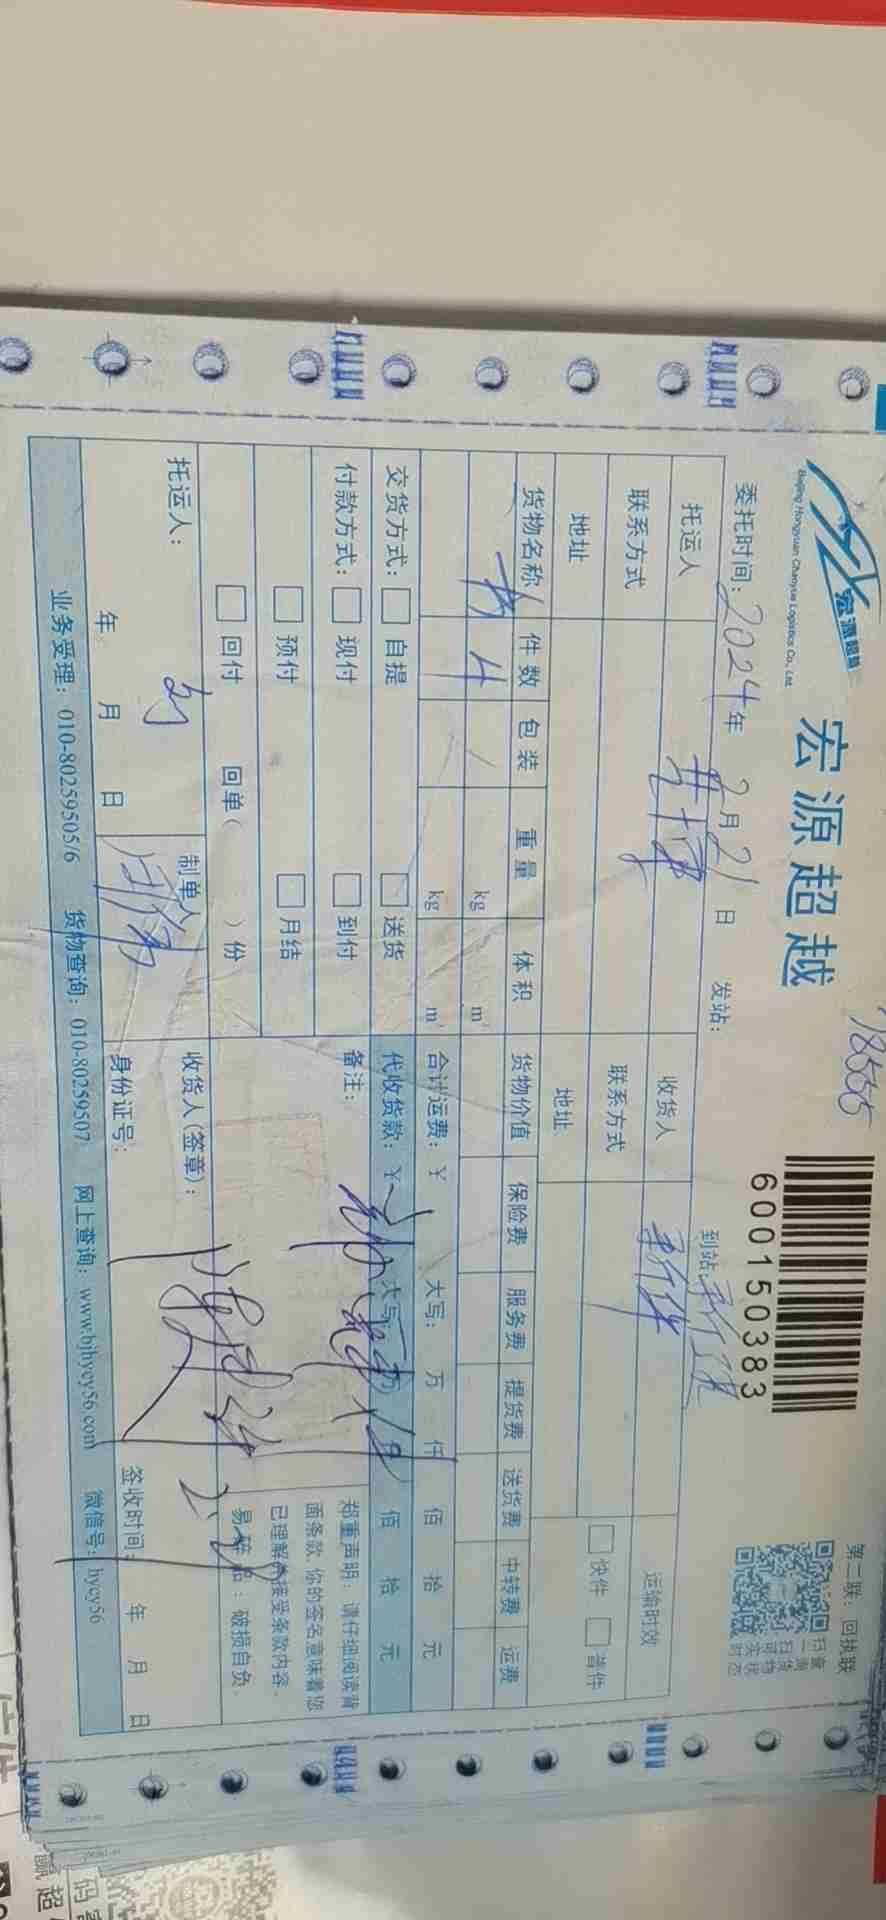 18555
宏源超越
Beijing Hongyuan Chaoyue Logistics Co., Ltd.
宏源超越
600150383
第二联：回执联
扫一扫可实
查询货物状
时态
委托时间：2024年 2月21日 发站： 到站
托运人 收货人 运输时效
联系方式 联系方式 快件 普件
地址 地址
货物名称 件数 包装 重量 体积 货物价值 保险费 服务费 提货费 送货费 中转费 运费
4 kg m³
kg m³ 合计运费：￥ 大写： 万 仟 佰 拾 元
交货方式： 自提 送货 代收货款：￥ 大写： 佰 拾 元
付款方式： 现付 到付 备注：
预付 月结
回付 回单( )份
郑重声明：请仔细阅读背
面条款，你的签名意味着您
已理解并接受条款内容。
易碎品：破损自负。
托运人： 制单人 收货人(签章)：
年 月 日 身份证号： 签收时间： 年 月 日
业务受理：010-80259505/6 货物查询：010-80259507 网上查询：www.bjhycy56.com 微信号：hycy56